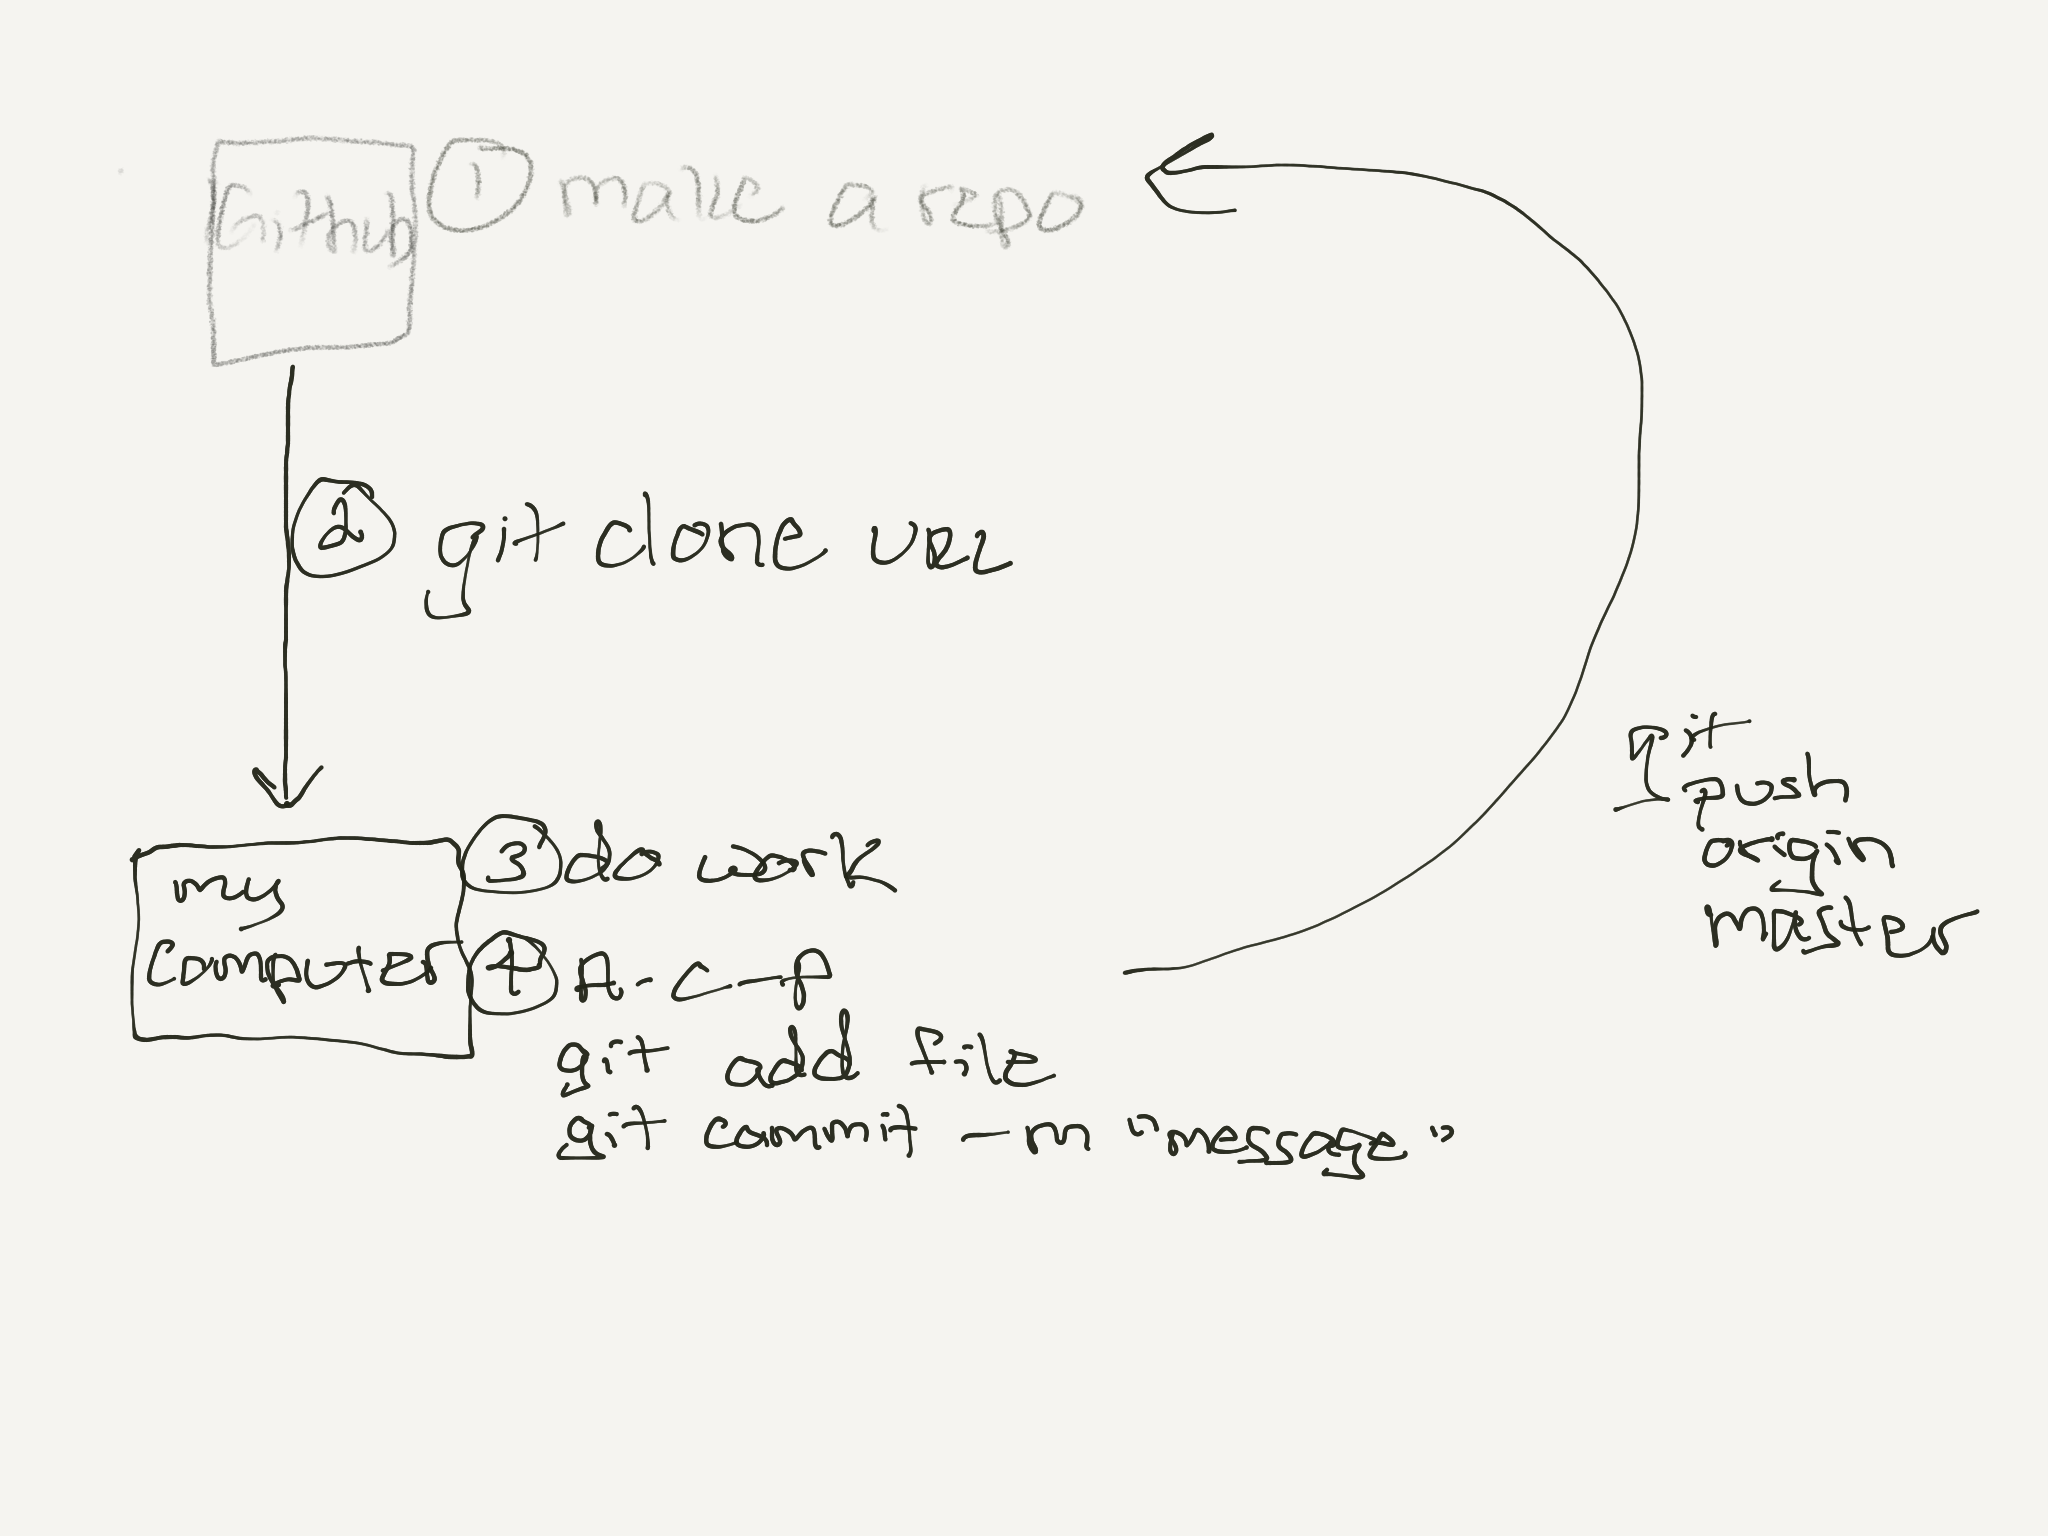 Github
① make a repo
② git clone URL
my
computer
③ do work
④ A-C-P
git add file
git commit -m "message"
git
push
origin
master